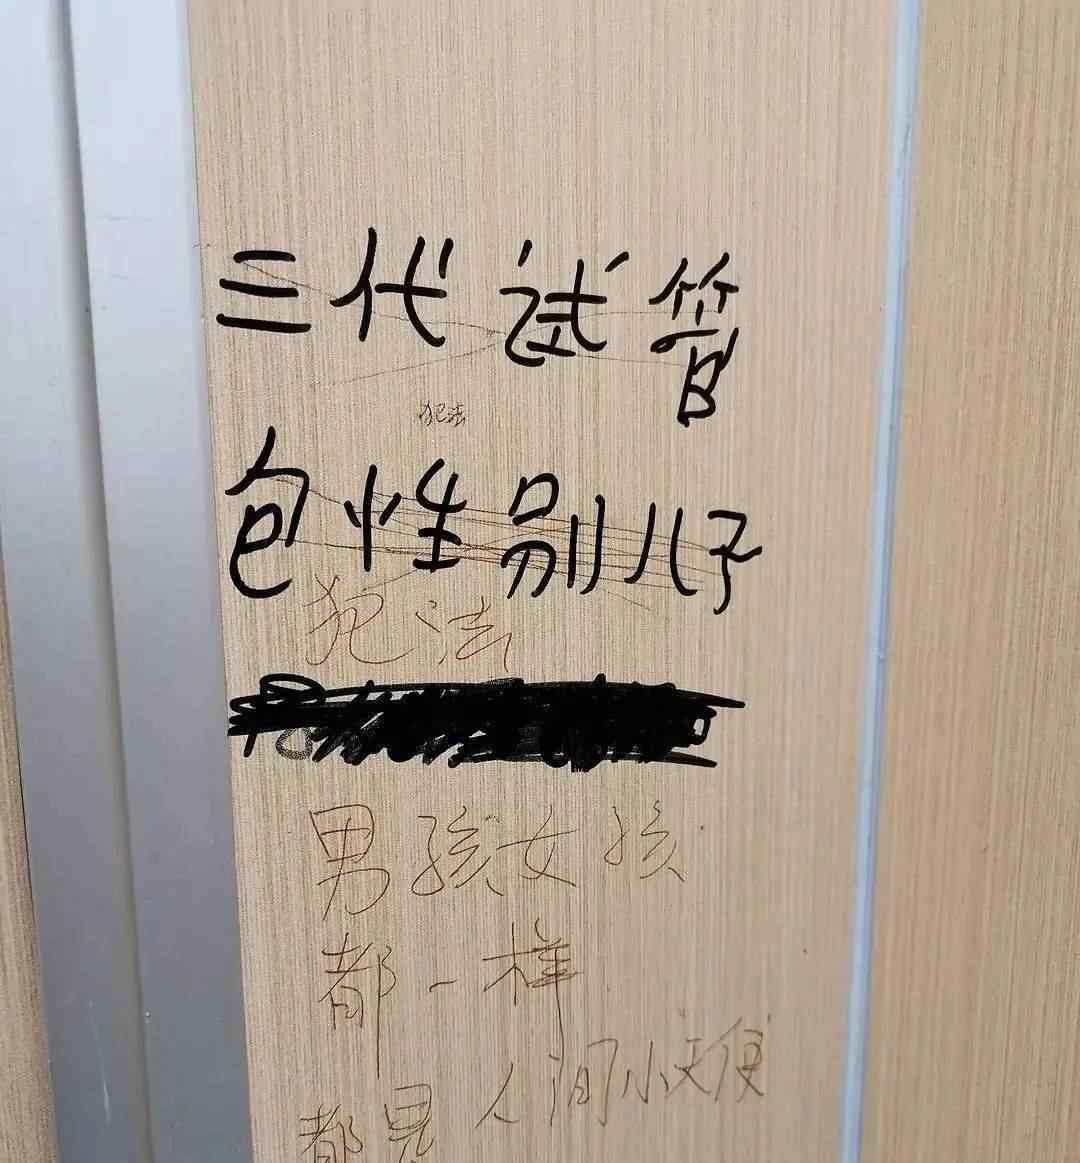 三代试管
犯法
包性别儿子
犯法
男孩女孩
都一样
都是人间小天使